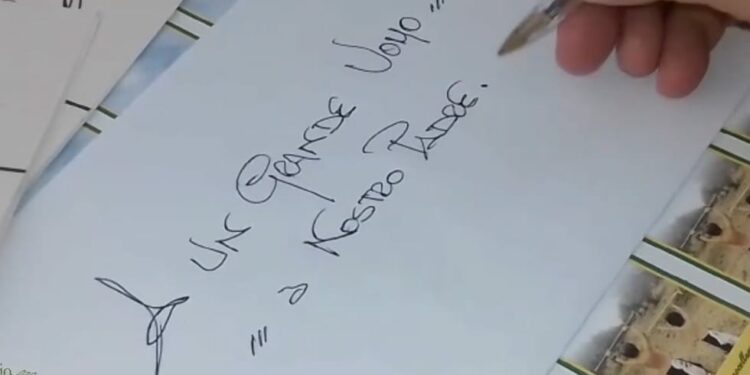 UN GRANDE UOMO...
... a NOSTRO PADRE.